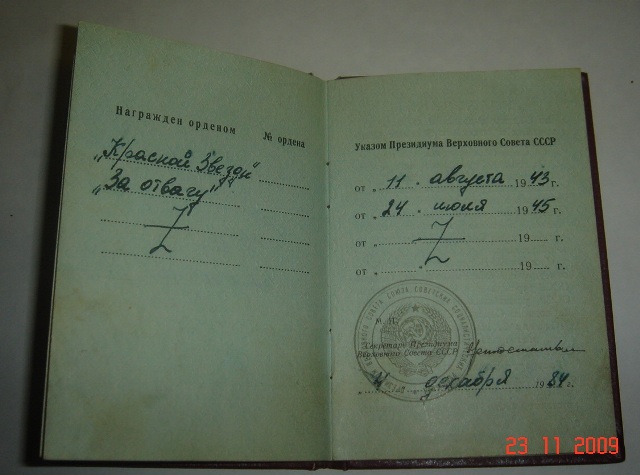 Награжден орденом № ордена
„Красной Звезды"
„За отвагу"
Z
Указом Президиума Верховного Совета СССР
от „ 11 . августа 1943 г.
от „ 24 . июля 1945 г.
от „ Z 19 г.
от „ „ 19 г.
М. П.
Секретарь Президиума
Верховного Совета СССР
декабря 1984 г.
23 11 2009